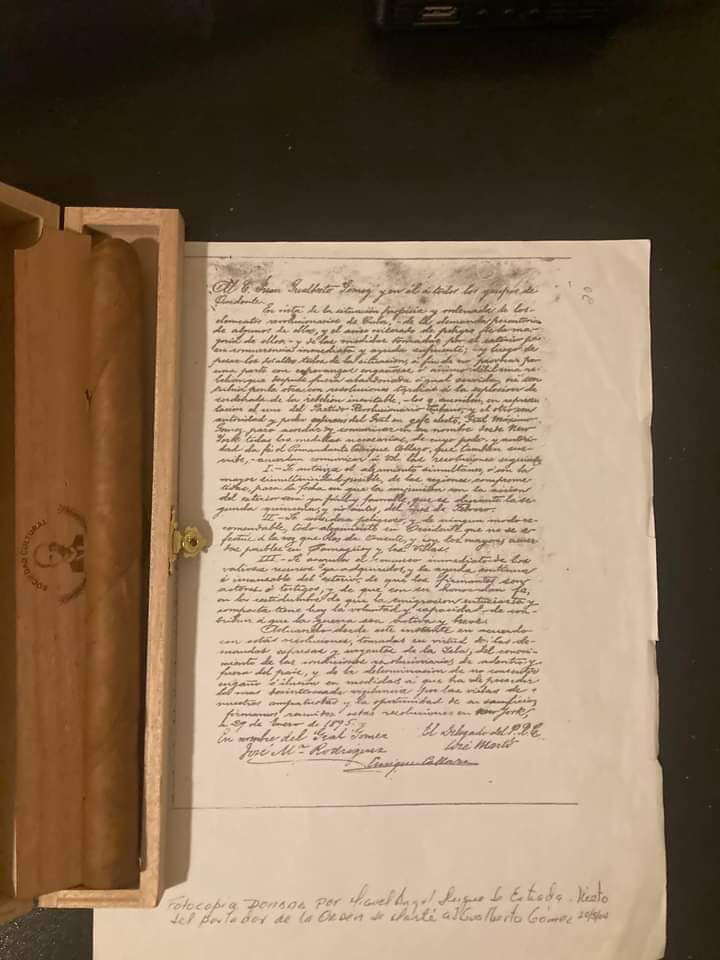 Al C. Juan Gualberto Gomez y en él á todos los grupos de
Occidente.
En vista de la situación propicia y ordenada de los
elementos revolucionarios de Cuba,- de la demanda perentoria
de algunos de ellos, y el aviso reiterado de peligro de la ma-
yoria de ellos,- y de las medidas tomadas por el exterior
en concurrencia inmediata y ayuda suficiente; -y luego de
pesar los detalles todos de la situacion, á fin de no
una parte con esperanzas engañosas ó animo debil una re-
belion que despues fuera abandonada ó mal servida, ni con-
tribuir por la otra con resoluciones tardias á la explosion de-
sordenada de la rebelion inevitable,- los q. suscriben, en represen-
tacion el uno del Partido Revolucionario Cubano, y el otro con
autoridad y poder expresos del Gral en gefe electo, Gral Máximo
Gomez, para acordar y comunicar en su nombre desde New
York todas las medidas necesarias, de cuyo poder y autori-
dad da fe el Comandante Enrique Collazo, que tambien sus-
cribe,- acuerdan comunicar á Vd. las resoluciones siguientes:
I.- Se autoriza el alzamiento simultaneo, ó con la
mayor simultaneidad posible, de las regiones comprome-
tidas, para la fecha en que la conjuncion con la accion
del exterior será ya facil y favorable, que es durante la se-
gunda quincena, y no antes, del mes de Febrero.
II.- Se considera peligroso, y de ningun modo re-
comendable, todo alzamiento en Occidente que no se e-
fectue á la vez que los de Oriente, y con los mayores acuer-
dos posibles en Camagüey y Las Villas.
III.- Se concurso inmediato de los
valiosos recursos ya adquiridos, y la ayuda continua
é incansable del exterior, de que los firmantes son
actores ó testigos, y de que con su honor dan fe,
en la certidumbre de que la emigracion entusiasta y
compacta tiene hoy la voluntad y capacidad de con-
tribuir á que la guerra sea activa y breve.
Actuando desde este instante en acuerdo
con estas resoluciones, tomadas en virtud de las de-
mandas expresas y urgentes de la Isla, del conoci-
miento de las condiciones revolucionarias de adentro y
fuera del pais, y de la determinacion de no consentir
engaño ó ilusion en medidas á que ha de presidir
la mas desinteresada vigilancia por las vidas de
nuestros compatriotas y la oportunidad de su sacrificio,
firmamos reunidos estas resoluciones en New York,
á 29 de Enero de 1895.
En nombre del Gral Gomez El Delegado del P.R.C.
José Mª Rodriguez José Martí
Enrique Collazo
Fotocopia Donada por Miguel Angel Duque de Estrada. Nieto
del portador de la Orden de Martí a Gualberto Gómez
SOCIEDAD CULTURAL